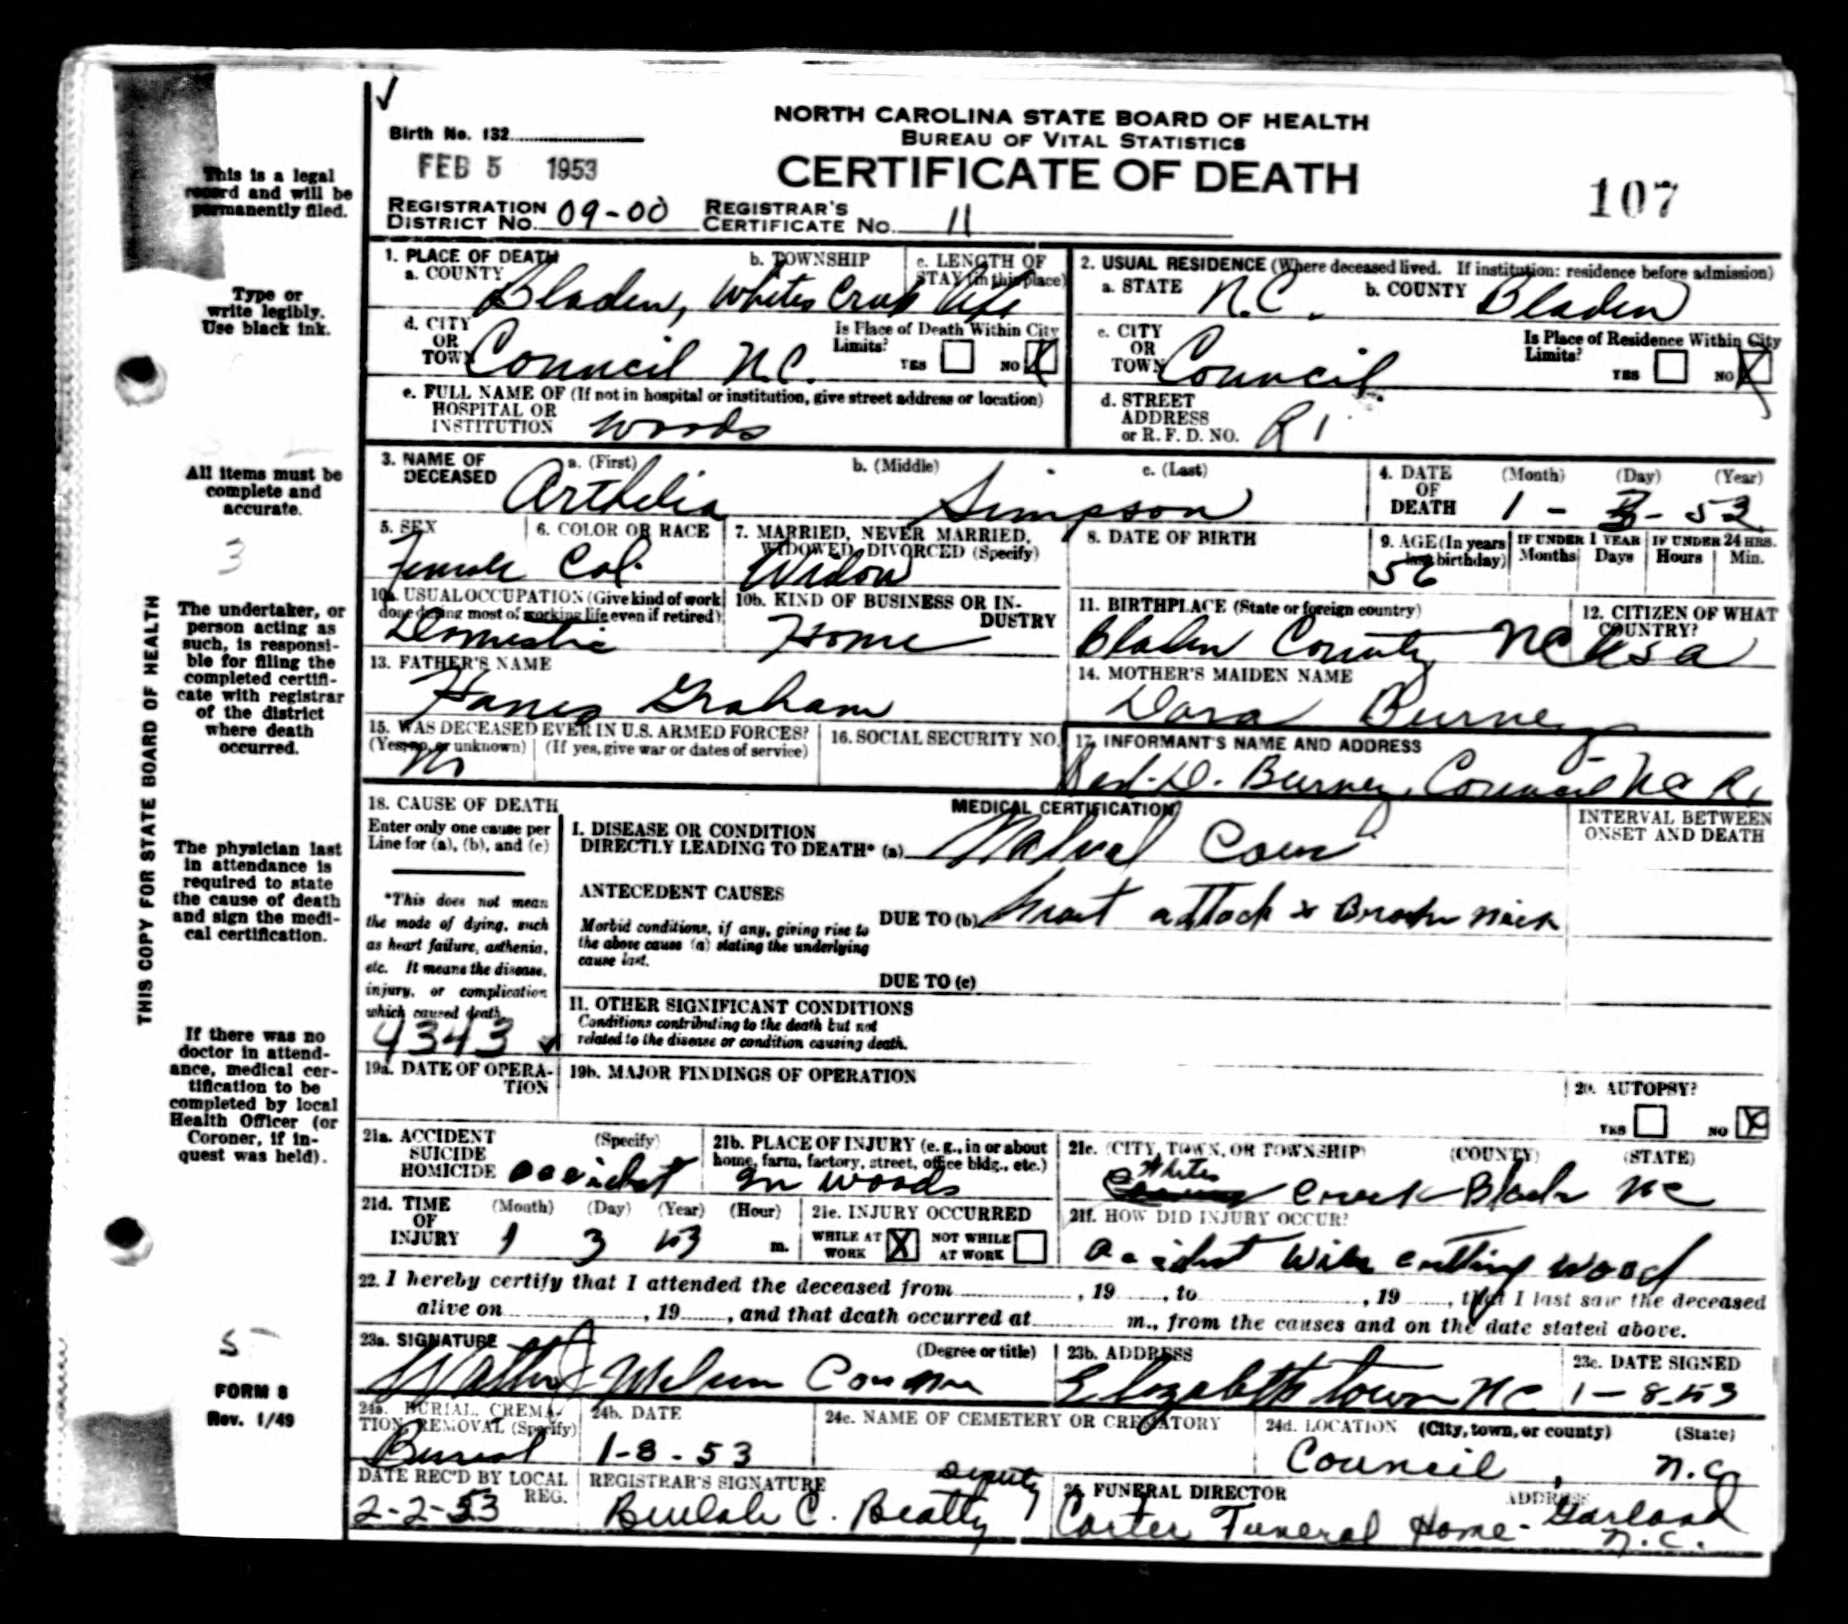 Birth No. 132
FEB 5 1953
NORTH CAROLINA STATE BOARD OF HEALTH
BUREAU OF VITAL STATISTICS
CERTIFICATE OF DEATH
107
REGISTRATION DISTRICT NO. 09-00 REGISTRAR'S CERTIFICATE NO. 11
THIS COPY FOR STATE BOARD OF HEALTH
This is a legal
record and will be
permanently filed.
Type or
write legibly.
Use black ink.
All items must be
complete and
accurate.
3
The undertaker, or
person acting as
such, is responsi-
ble for filing the
completed certifi-
cate with registrar
of the district
where death
occurred.
The physician last
in attendance is
required to state
the cause of death
and sign the medi-
cal certification.
If there was no
doctor in attend-
ance, medical cer-
tification to be
completed by local
Health Officer (or
Coroner, if in-
quest was held).
5
FORM 8
Rev. 1/49
1. PLACE OF DEATH
a. COUNTY Bladen, b. TOWNSHIP Whites Creek c. LENGTH OF STAY (in this place) life
d. CITY OR TOWN Council N.C. Is Place of Death Within City Limits? YES NO X
e. FULL NAME OF (If not in hospital or institution, give street address or location)
HOSPITAL OR INSTITUTION woods
2. USUAL RESIDENCE (Where deceased lived. If institution: residence before admission)
a. STATE N.C. b. COUNTY Bladen
c. CITY OR TOWN Council Is Place of Residence Within City Limits? YES NO X
d. STREET ADDRESS or R. F. D. NO. R 1
3. NAME OF DECEASED a. (First) Arthelia b. (Middle) c. (Last) Simpson
4. DATE OF DEATH (Month) (Day) (Year) 1 - 3 - 53
5. SEX Female
6. COLOR OR RACE Col.
7. MARRIED, NEVER MARRIED, WIDOWED, DIVORCED (Specify) Widow
8. DATE OF BIRTH
9. AGE (In years last birthday) 56 IF UNDER 1 YEAR Months Days IF UNDER 24 HRS. Hours Min.
10a. USUAL OCCUPATION (Give kind of work done during most of working life even if retired) Domestic
10b. KIND OF BUSINESS OR INDUSTRY Home
11. BIRTHPLACE (State or foreign country) Bladen County NC
12. CITIZEN OF WHAT COUNTRY? USA
13. FATHER'S NAME Graham
14. MOTHER'S MAIDEN NAME Dora Burney
15. WAS DECEASED EVER IN U.S. ARMED FORCES? (Yes, no, or unknown) (If yes, give war or dates of service) No
16. SOCIAL SECURITY NO.
17. INFORMANT'S NAME AND ADDRESS
D. Burney, Council NC R1
18. CAUSE OF DEATH
Enter only one cause per
Line for (a), (b), and (c)
*This does not mean
the mode of dying, such
as heart failure, asthenia,
etc. It means the disease,
injury, or complication
which caused death.
4343
MEDICAL CERTIFICATION
INTERVAL BETWEEN ONSET AND DEATH
I. DISEASE OR CONDITION
DIRECTLY LEADING TO DEATH* (a)
ANTECEDENT CAUSES
Morbid conditions, if any, giving rise to
the above cause (a) stating the underlying
cause last.
DUE TO (b) heart attack
DUE TO (c)
II. OTHER SIGNIFICANT CONDITIONS
Conditions contributing to the death but not
related to the disease or condition causing death.
19a. DATE OF OPERATION
19b. MAJOR FINDINGS OF OPERATION
20. AUTOPSY? YES NO X
21a. ACCIDENT SUICIDE HOMICIDE (Specify) accident
21b. PLACE OF INJURY (e. g., in or about home, farm, factory, street, office bldg., etc.) In woods
21c. (CITY, TOWN, OR TOWNSHIP) (COUNTY) (STATE)
Whites Creek Bladen NC
21d. TIME OF INJURY (Month) (Day) (Year) (Hour) 1 3 53 m.
21e. INJURY OCCURRED WHILE AT WORK X NOT WHILE AT WORK
21f. HOW DID INJURY OCCUR?
cutting wood
22. I hereby certify that I attended the deceased from , 19 , to , 19 , that I last saw the deceased
alive on , 19 , and that death occurred at m., from the causes and on the date stated above.
23a. SIGNATURE (Degree or title)
23b. ADDRESS Elizabethtown NC
23c. DATE SIGNED 1-8-53
24a. BURIAL, CREMATION REMOVAL (Specify) Burial
24b. DATE 1-8-53
24c. NAME OF CEMETERY OR CREMATORY
24d. LOCATION (City, town, or county) (State) Council, N.C.
DATE REC'D BY LOCAL REG. 2-2-53
REGISTRAR'S SIGNATURE Beulah C. Beatty deputy
25. FUNERAL DIRECTOR ADDRESS
Carter Funeral Home - Garland N.C.